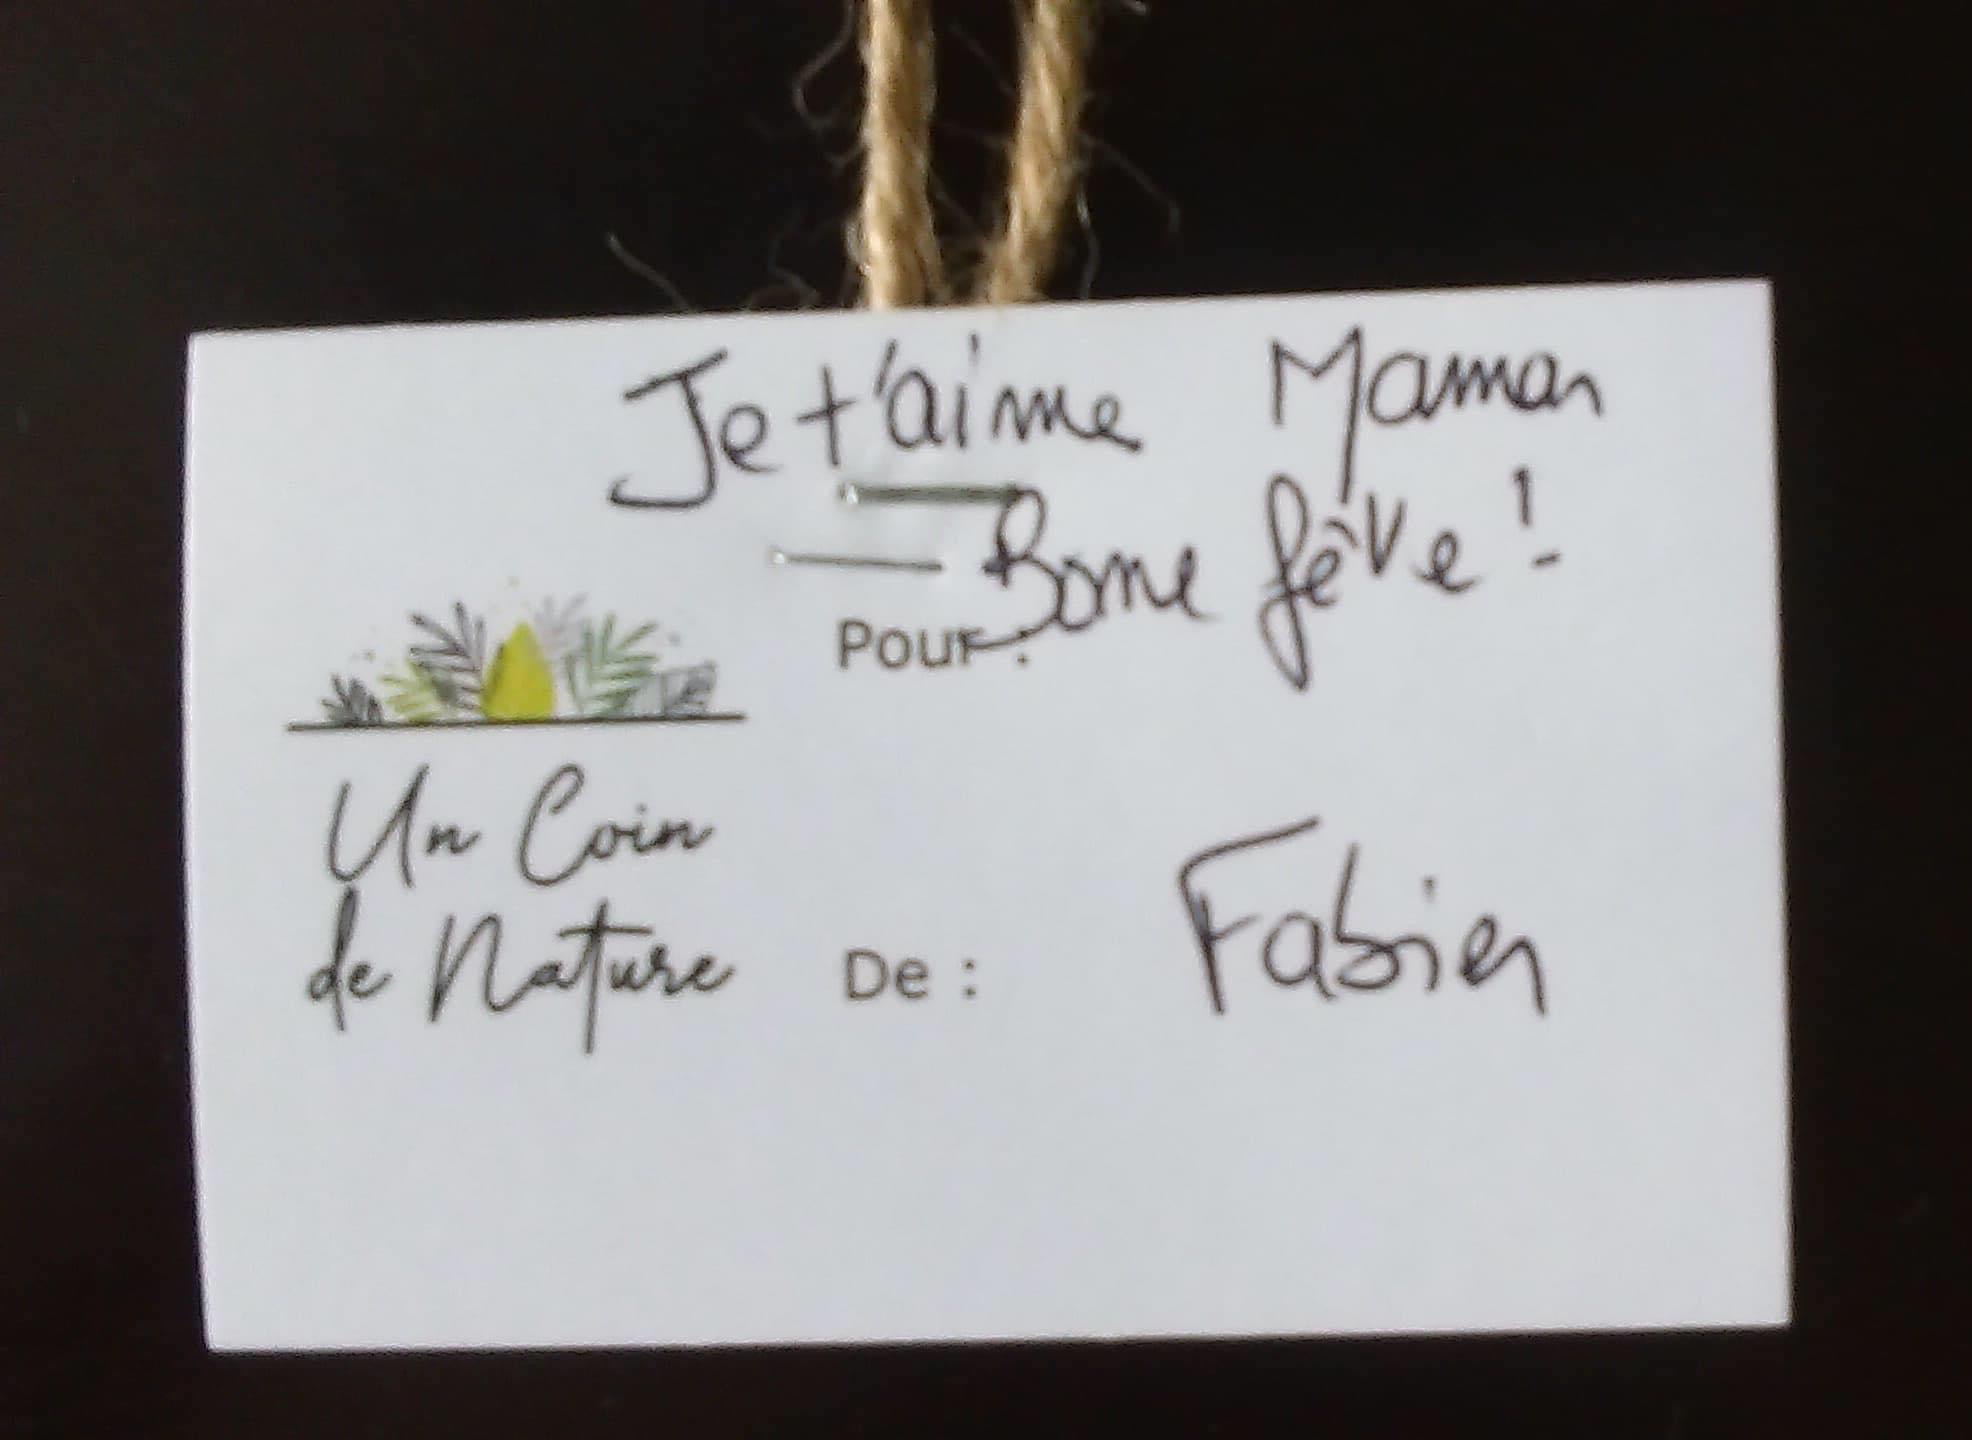 Je t'aime Maman
Bonne fêve !
Pour :
Un Coin
de Nature
De :
Fabien